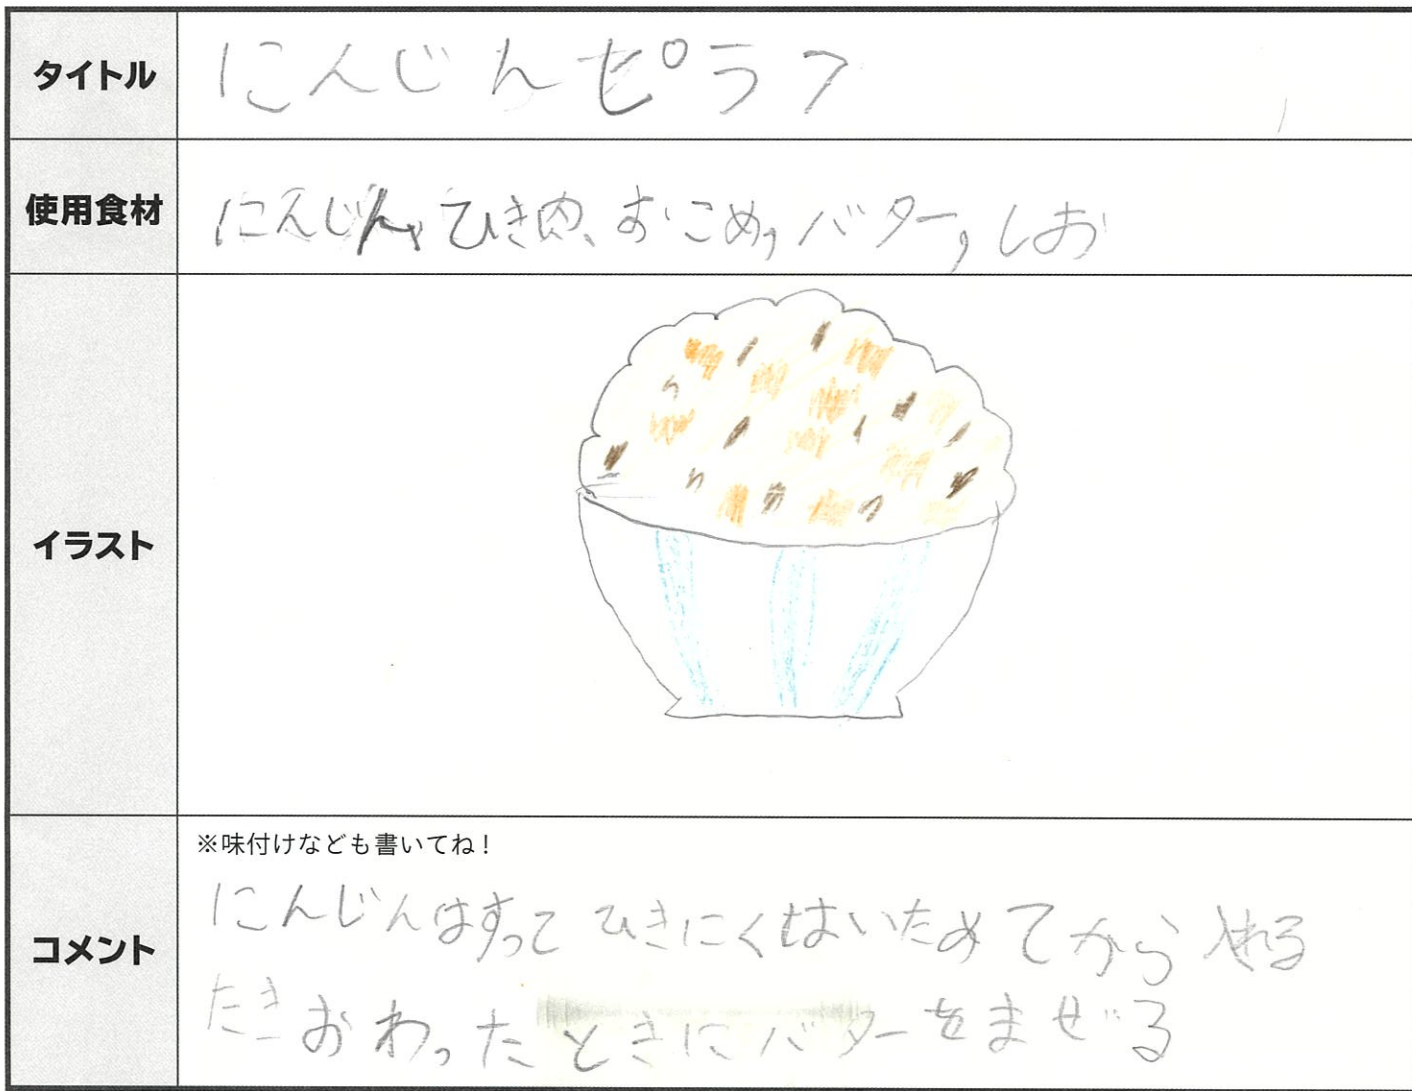 タイトル
にんじんピラフ
使用食材
にんじん、ひき肉、おこめ,バター,しお
イラスト
コメント
※味付けなども書いてね！
にんじんはすって ひきにくはいためてから入れる
たきおわったときにバターをまぜる